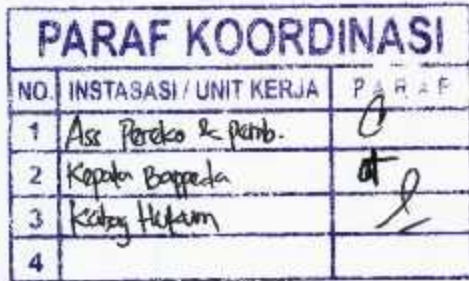 PARAF KOORDINASI
NO. INSTASASI / UNIT KERJA PARAF
1 Ass Pereko & pemb.
2 Kepala Bappeda
3 Kabag Hukum
4